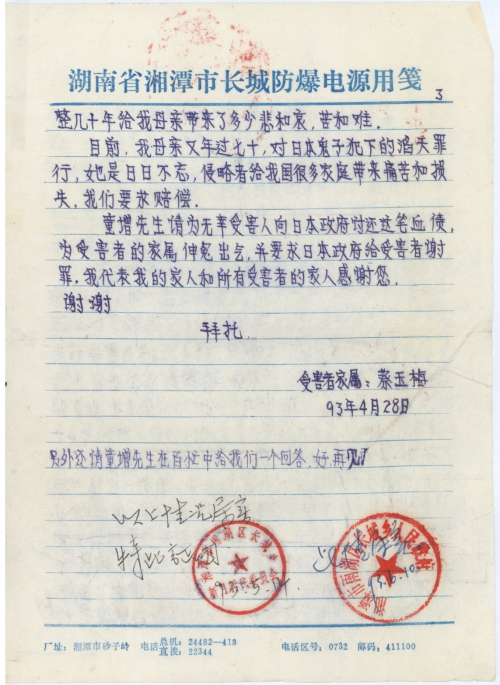 湖南省湘潭市长城防爆电源用笺
3
整几十年给我母亲带来了多少悲和哀，苦和难．
目前，我母亲又年过七十，对日本鬼子犯下的滔天罪
行，她是日日不忘，侵略者给我国很多家庭带来痛苦和损
失，我们要求赔偿．
童增先生请为无辜受害人向日本政府讨还这笔血债，
为受害者的家属伸冤出气，并要求日本政府给受害者谢
罪．我代表我的家人和所有受害者的家人感谢您．
谢谢
拜托．
受害者家属：蔡玉梅
93年4月28日
另外还请童增先生在百忙中给我们一个回答．好．再见！
以上情况属实
特此证明
厂址：湘潭市砂子岭 电话 总机：24482—418 直拨：22344 电话区号：0732 邮码：411100